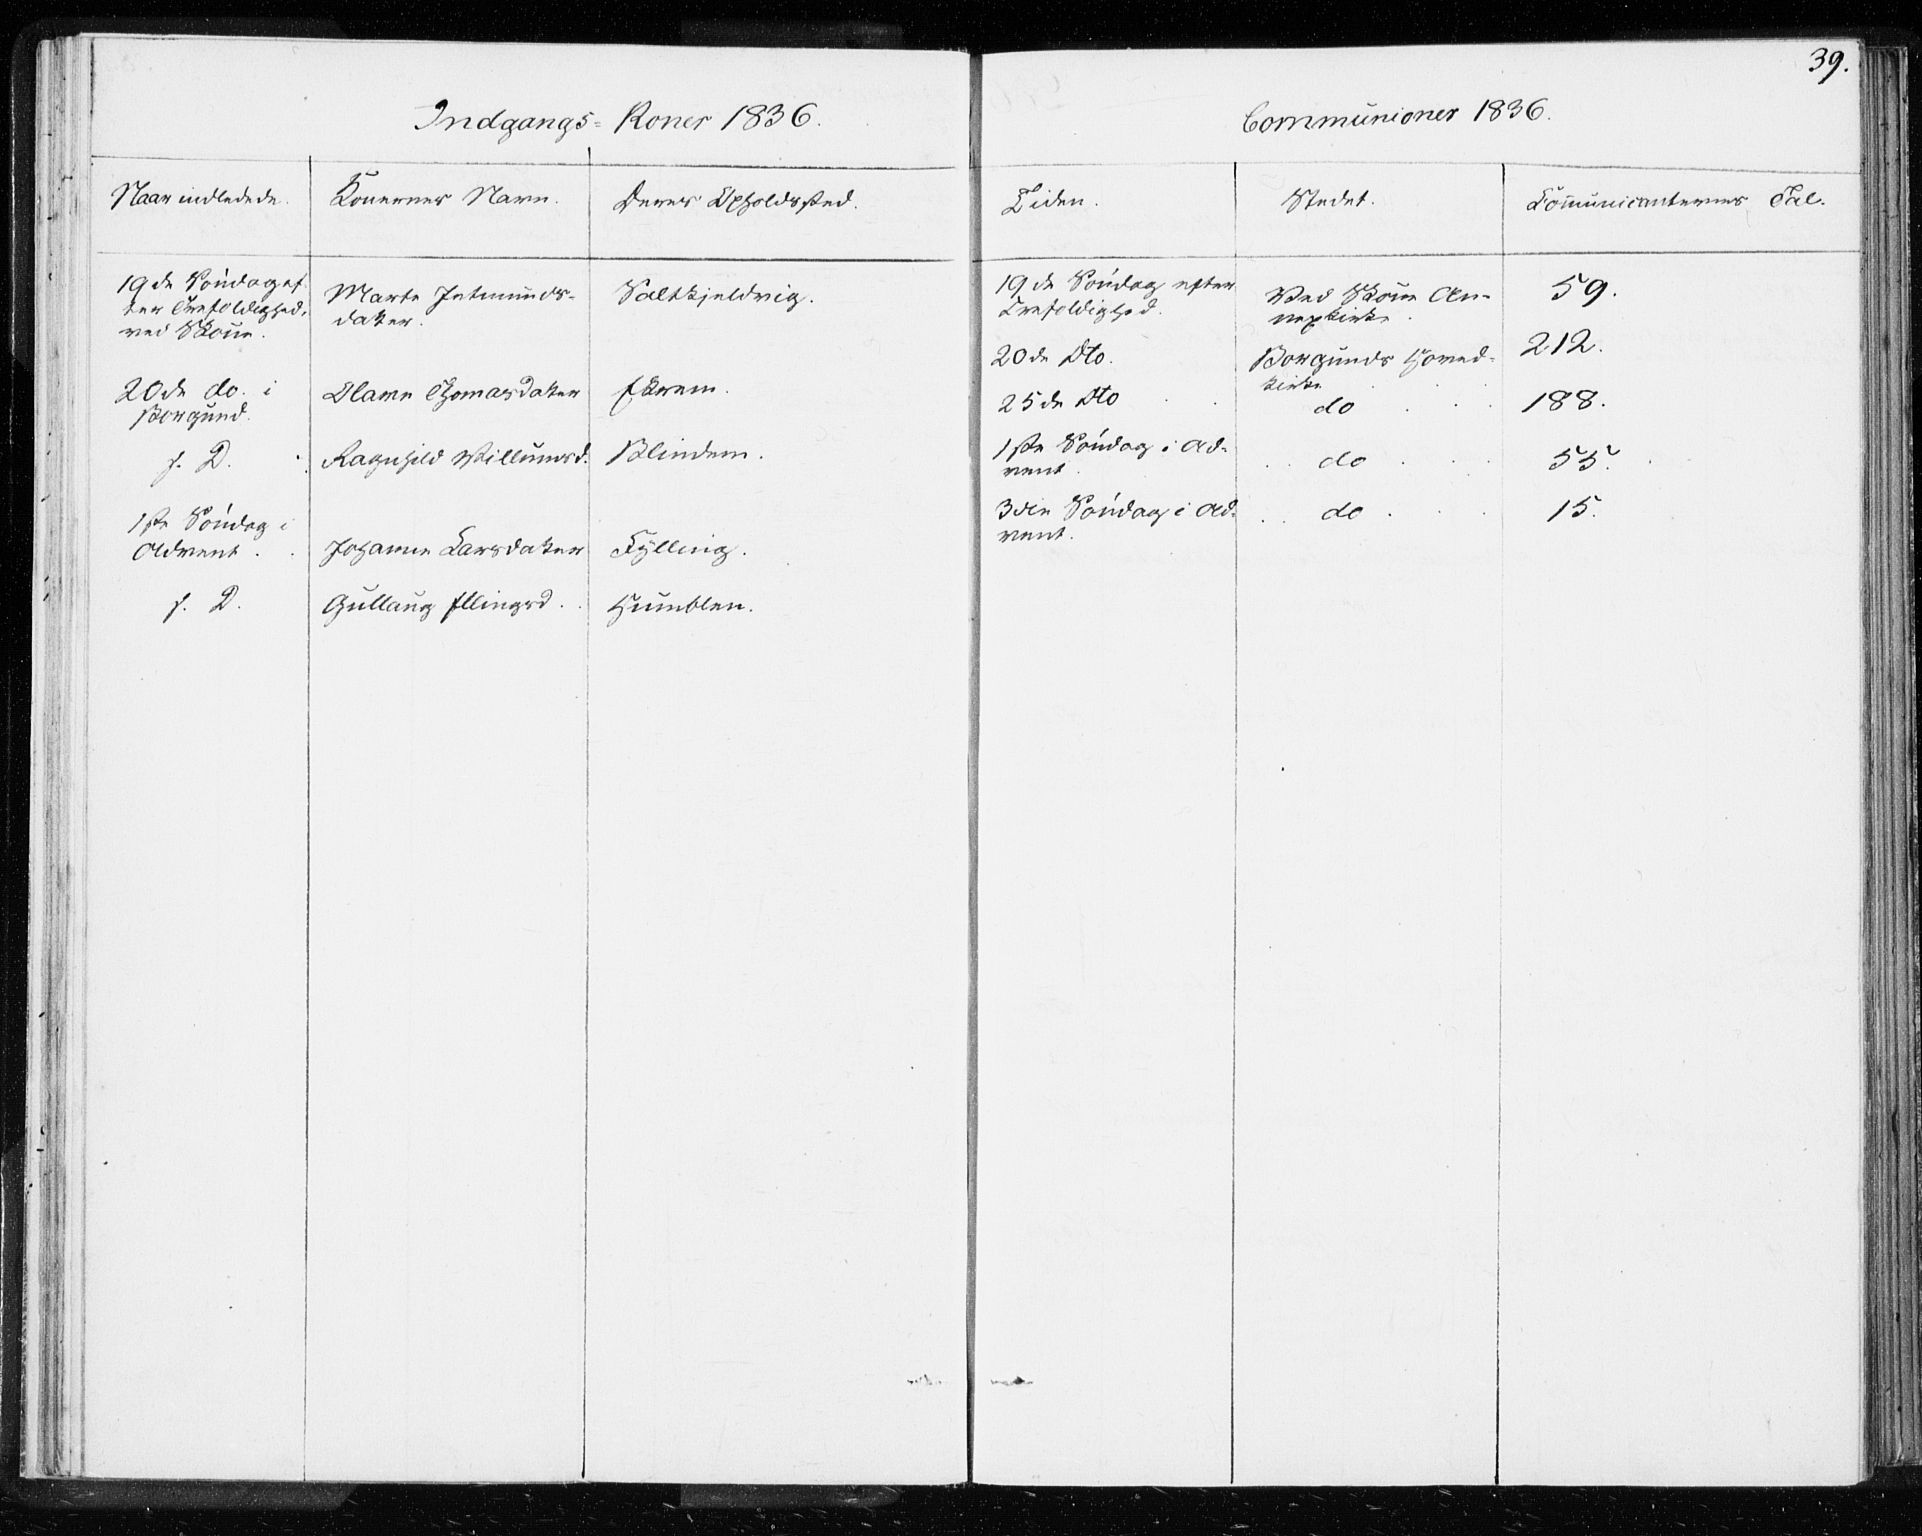 39.
Indgangs-Koner 1836.
Naar indledede.
Konernes Navn.
Deres Opholdssted.
19de Söndag ef-
ter Trefoldighed,
ved Skoue.
Marte Jetmunds-
dater.
Saltkjeldvig.
20de do. i
Borgund.
Olave Thomasdater
Ekrem.
s. D.
Ragnhild Villumsd.
Blindem.
1ste Söndag i
Advent.
Johanne Larsdater
Fylling.
s. D.
Gullaug Ellingsd.
Humblen.
Communioner 1836.
Tiden.
Stedet.
Communicanternes Tal.
19de Söndag efter
Trefoldighed.
Ved Skoue An-
nexkirke.
59.
20de Dto.
Borgunds Hoved-
kirke
212.
25de Dto
do
188.
1ste Söndag i Ad-
vent.
do
55.
3die Söndag i Ad-
vent.
do
15.